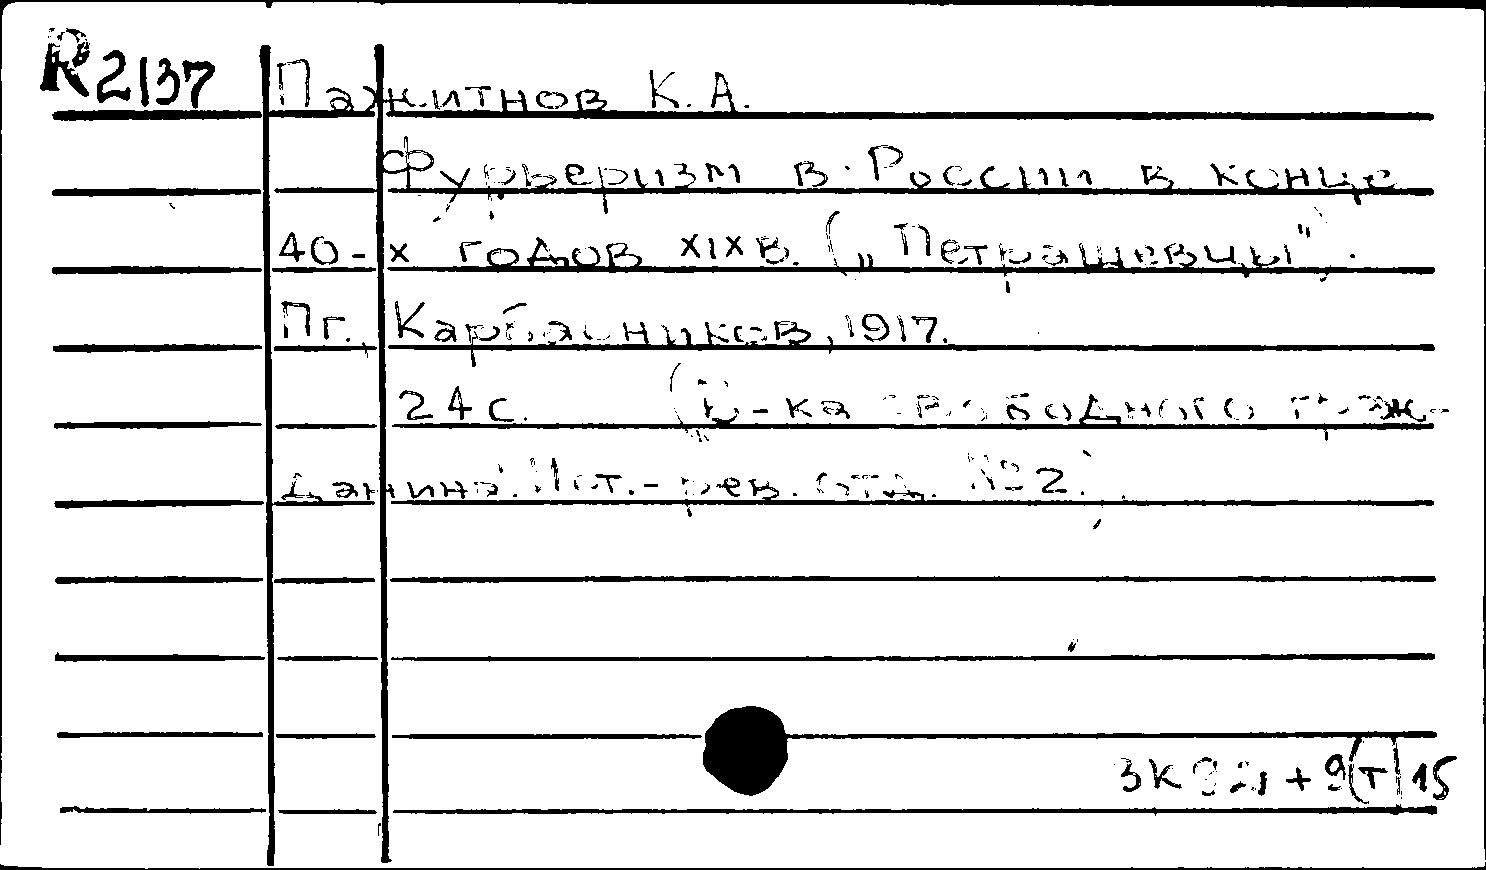 R2137 Пажитнов К. А.
Фурьеризм в России в конце
40-х годов XIX в. („Петрашевцы").
Пг., Карбасников, 1917.
24 с. (Б-ка свободного граж-
данина. Ист.-рев. отд. №2.)
3К + 9(Т)15